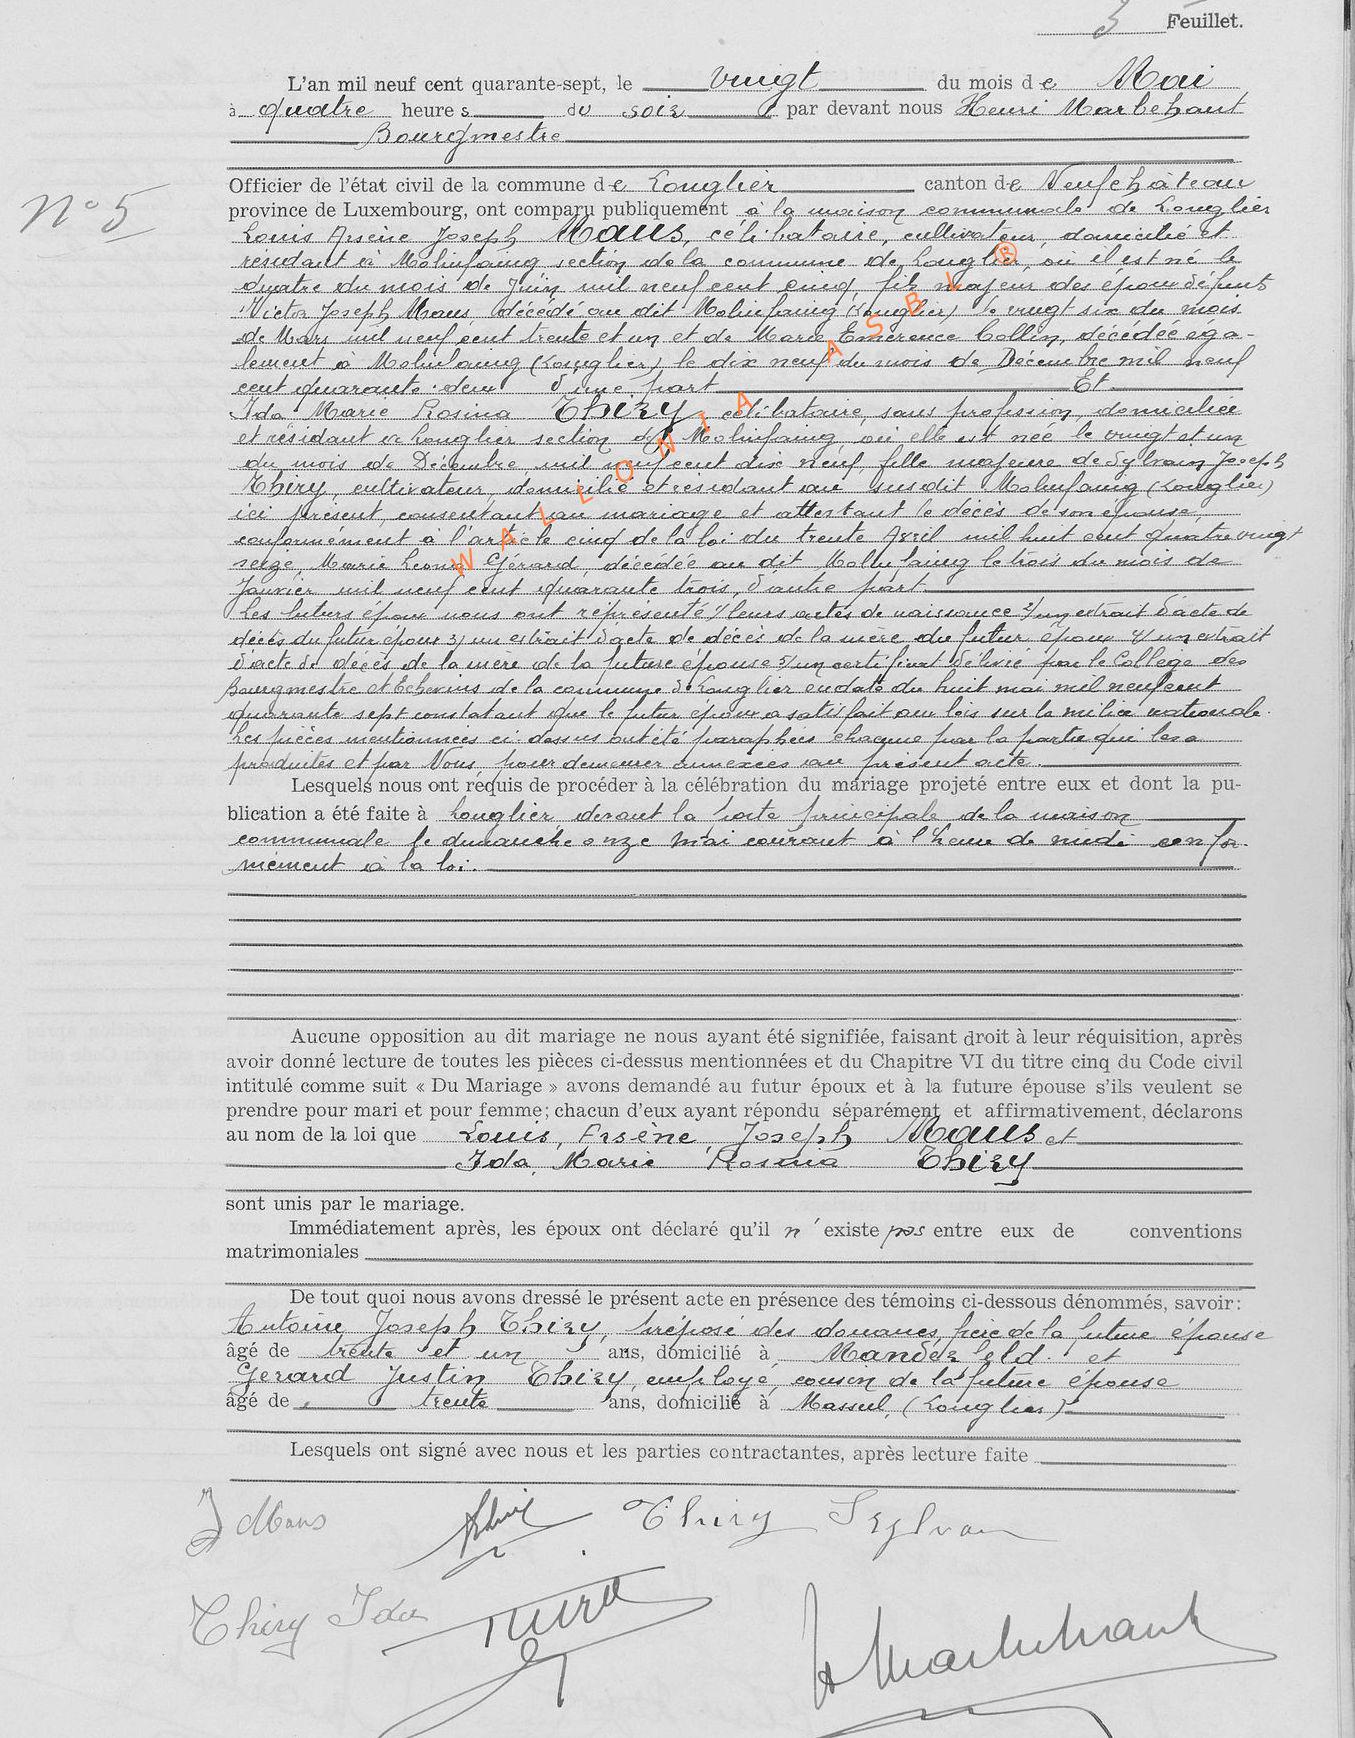 3 Feuillet.
L'an mil neuf cent quarante-sept, le vingt du mois de Mai
à quatre heures du soir par devant nous Henri Marbehant
Bourgmestre
N° 5
Officier de l'état civil de la commune de Longlier canton de Neufchâteau
province de Luxembourg, ont comparu publiquement à la maison communale de Longlier
Louis Arsène Joseph Maus, célibataire, cultivateur, domicilié et
résidant à Molinfaing section de la commune de Longlier, où il est né le
quatre du mois de Juin mil neuf cent cinq, fils majeur des époux défunts
Victor Joseph Maus, décédé au dit Molinfaing (Longlier) le vingt six du mois
de Mars mil neuf cent trente et un et de Marie Emérence Collin, décédée éga-
lement à Molinfaing (Longlier) le dix neuf du mois de Décembre mil neuf
cent quarante-deux d'une part Et
Ida Marie Rosina Thiry, célibataire, sans profession, domiciliée
et résidant à Longlier section de Molinfaing où elle est née le vingt et un
du mois de Décembre mil neuf cent dix neuf, fille majeure de Sylvain Joseph
Thiry, cultivateur, domicilié et résidant au susdit Molinfaing (Longlier)
ici présent, consentant au mariage et attestant le décès de son épouse,
conformément à l'article cinq de la loi du trente Avril mil huit cent quatre vingt
seize, Marie Gérard, décédée au dit Molinfaing le trois du mois de
Janvier mil neuf cent quarante trois, d'autre part.
Les futurs époux nous ont représenté 1/ leurs actes de naissance 2/ un extrait d'acte de
décès du futur époux 3/ un extrait d'acte de décès de la mère du futur époux 4/ un extrait
d'acte de décès de la mère de la future épouse 5/ un certificat délivré par le Collège des
Bourgmestre et Echevins de la commune de Longlier en date du huit mai mil neuf cent
quarante sept constatant que le futur époux a satisfait aux lois sur la milice nationale.
Les pièces mentionnées ci-dessus ont été paraphées chacune par la partie qui les a
produites et par Nous, pour demeurer annexées au présent acte.
Lesquels nous ont requis de procéder à la célébration du mariage projeté entre eux et dont la pu-
blication a été faite à Longlier, devant la porte principale de la maison
communale le dimanche onze mai courant à l'heure de midi confor-
mément à la loi.
Aucune opposition au dit mariage ne nous ayant été signifiée, faisant droit à leur réquisition, après
avoir donné lecture de toutes les pièces ci-dessus mentionnées et du Chapitre VI du titre cinq du Code civil
intitulé comme suit « Du Mariage » avons demandé au futur époux et à la future épouse s'ils veulent se
prendre pour mari et pour femme; chacun d'eux ayant répondu séparément et affirmativement, déclarons
au nom de la loi que Louis, Arsène, Joseph Maus et
Ida, Marie Rosina Thiry
sont unis par le mariage.
Immédiatement après, les époux ont déclaré qu'il n'existe pas entre eux de conventions
matrimoniales
De tout quoi nous avons dressé le présent acte en présence des témoins ci-dessous dénommés, savoir:
Antoine Joseph Thiry, préposé des douanes, frère de la future épouse
âgé de trente et un ans, domicilié à Manderfeld et
Gerard Justin Thiry, employé, cousin de la future épouse
âgé de trente ans, domicilié à Massul, (Longlier)
Lesquels ont signé avec nous et les parties contractantes, après lecture faite
J Maus Thiry Thiry Sylvain
Thiry Ida Thiry H Marbehant
WALLONIA ASBL ®